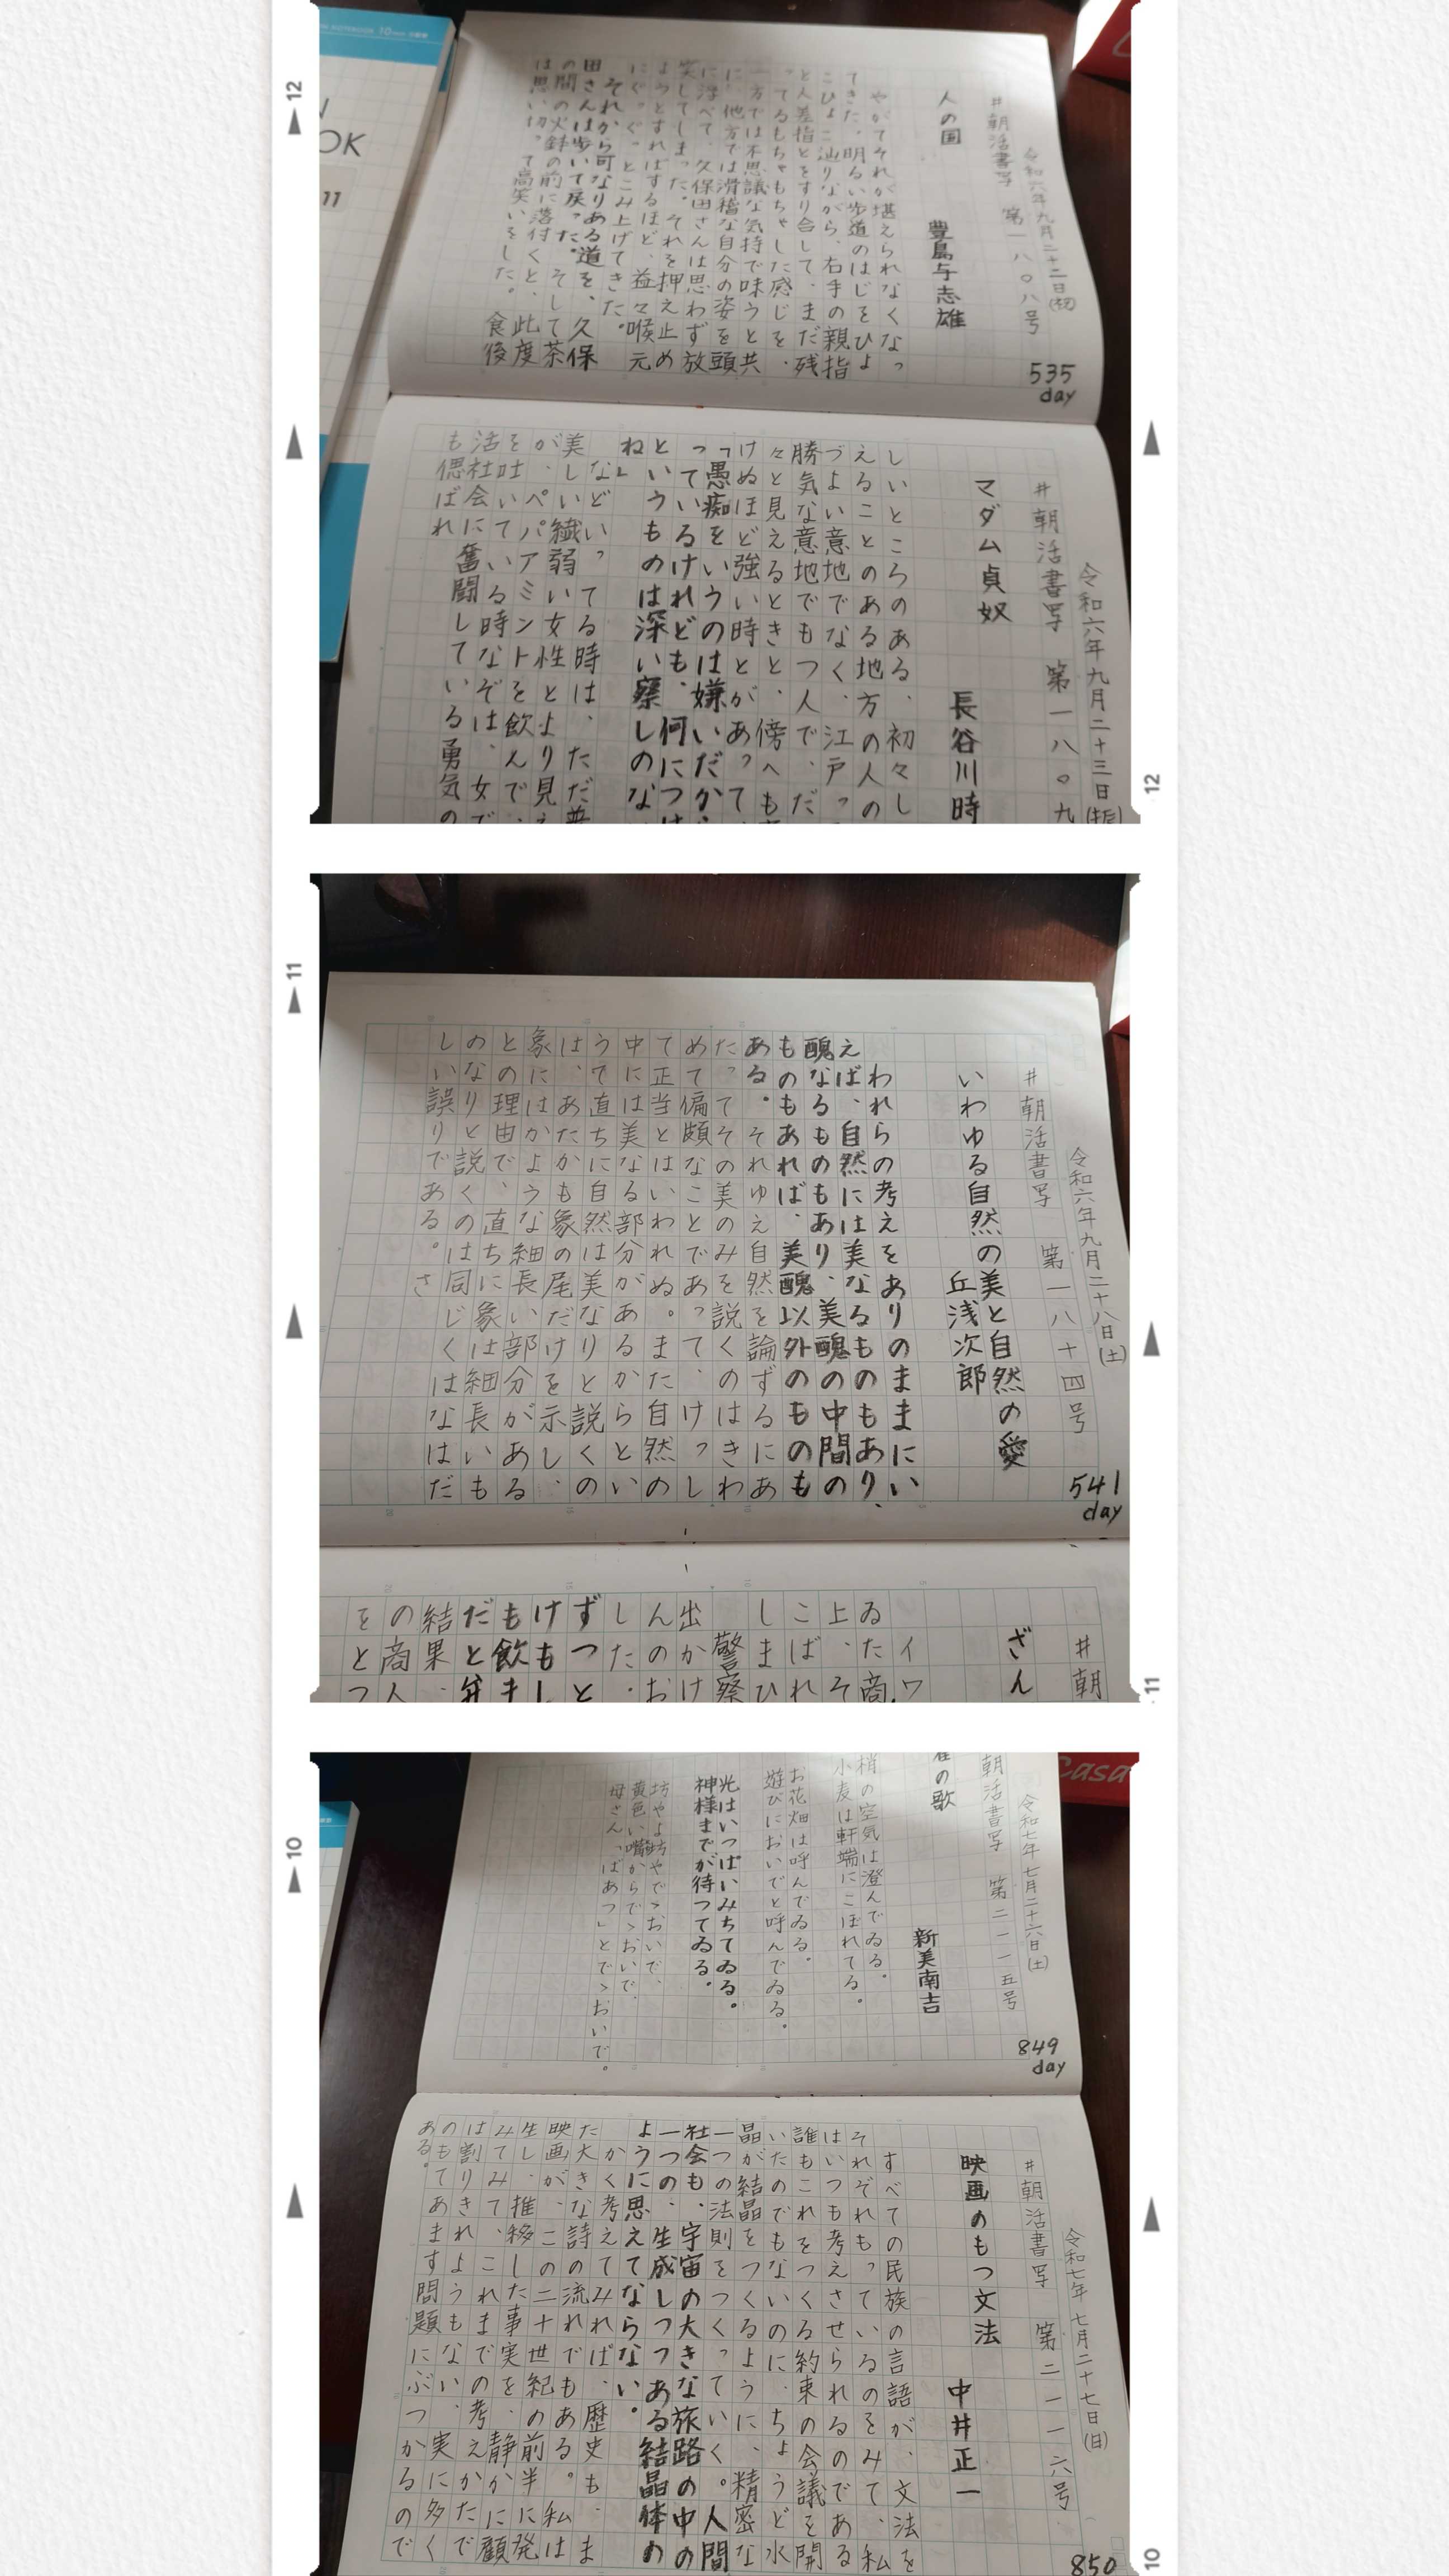 12
OK
11
令和六年九月二十二日(祝)
#朝活書写　第一八〇八号
535
day
人の国　豊島与志雄
やがてそれが堪えられなくなっ
てきた。明るい歩道のはじをひょ
こひょこ辿りながら、右手の親指
と人差指とをすり合して、まだ残
ってるもちゃもちゃした感じを、
一方では不思議な気持で味うと共
に、他方では滑稽な自分の姿を頭
に浮べて、久保田さんは思わず放
笑してしまった。それを押え止め
ようとすればするほど、益々喉元
にぐぐっとこみ上げてきた。
それから可なりある道を、久保
田さんは歩いて戻った。そして茶
の間の火鉢の前に落付くと、此度
は思い切って高笑いをした。食後
令和六年九月二十三日(振)
#朝活書写　第一八〇九
マダム貞奴　長谷川時
しいところのある、初々し
えることのある地方の人の
づよい意地でなく、江戸っ
勝気な意地でもつ人で、だ
々と見えるときと、傍へも
けぬほど強い時とがあって
「愚痴をいうのは嫌いだから
っているけれども、何につけ
というものは深い察しのな
ね」
などいってる時は、ただ普
美しい繊弱い女性とより見え
が、ペパアミントを飲んで、
を吐いている時なぞは、女で
活社会に奮闘している勇気の
も偲ばれ
12
11
令和六年九月二十八日(土)
#朝活書写　第一八十四号
541
day
いわゆる自然の美と自然の愛
丘浅次郎
われらの考えをありのままにい
えば、自然には美なるものもあり、
醜なるものもあり、美醜の中間の
ものもあれば、美醜以外のものも
ある。それゆえ自然を論ずるにあ
たってその美のみを説くのはきわ
めて偏頗なことであって、けっし
て正当とはいわれぬ。また自然の
中には美なる部分があるからとい
うて直ちに自然は美なりと説くの
は、あたかも象の尾だけを示し、
象にはかような細長い部分がある
との理由で、直ちに象は細長いも
のなりと説くのは同じくはなはだ
しい誤りである。さ
#朝
ざん
イワ
ゐた商
上、そ
こばれ
しまひ
警察
出かけ
んのお
した。
ずつと
けもし
もまし
だと弁
結果、
の商人
をとつ
11
10
Casa
令和七年七月二十六日(土)
朝活書写　第二一一五号
849
day
雀の歌　新美南吉
梢の空気は澄んでゐる。
小麦は軒端にこぼれてる。
お花畑は呼んでゐる。
遊びにおいでと呼んでゐる。
光はいつぱいみちてゐる。
神様までが待つてゐる。
坊やよ坊やでゝおいで、
黄色い嘴からでゝおいで、
母さん「ばあつ」とでゝおいで。
令和七年七月二十七日(日)
#朝活書写　第二一一六号
850
映画のもつ文法　中井正一
すべての民族の言語が、文法を
それぞれもっているのをみて、私
はいつも考えさせられるのである
誰もこれをつくる約束の会議を開
いたのでもないのに、ちょうど水
晶が結晶をつくるように、精密な
一つの法則をつくっていく。人間
社会も、宇宙の大きな旅路の中の
一つの、生成しつつある結晶体の
ように思えてならない。
かく考えてみれば、歴史も、ま
た大きな詩の流れでもある。私は
映画が、この二十世紀の前半に発
生し、推移した事実を、静かに顧
みてみて、これまでの考えかたで
は割りきれようもない、実に多く
のものてあます問題にぶつかるので
ある。
10